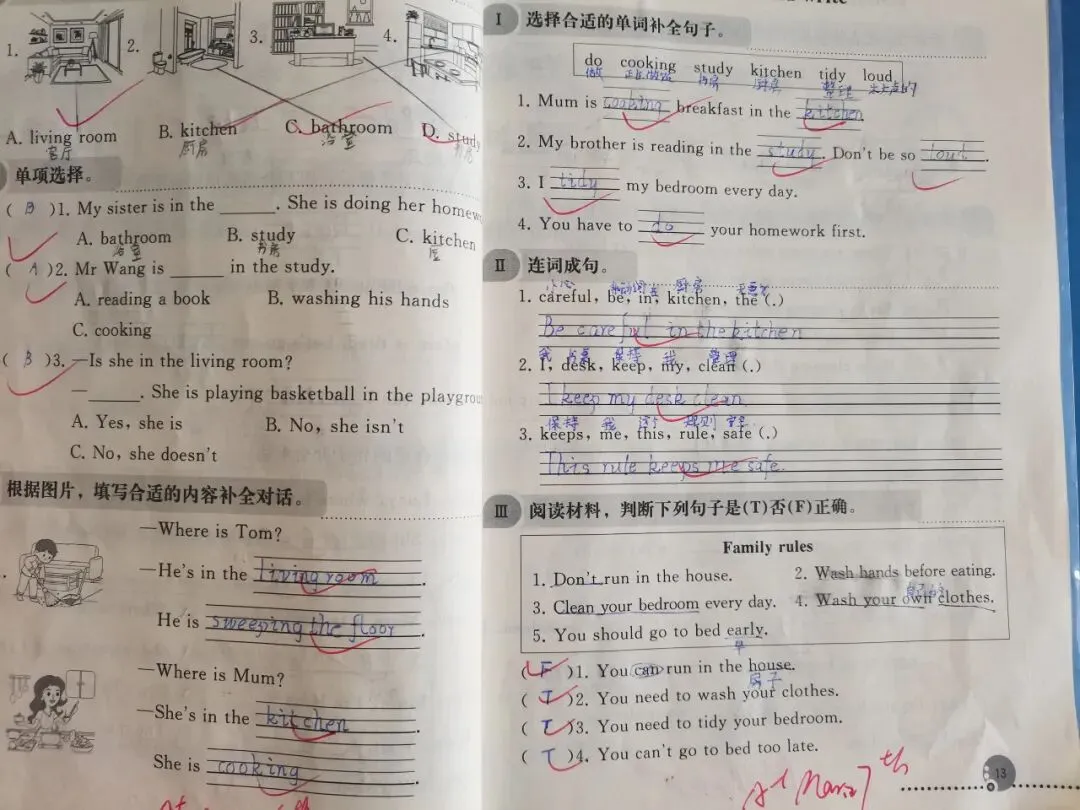 1.
2.
3.
4.
A. living room
B. kitchen
C. bathroom
D. study
客厅
厨房
浴室
书房
单项选择。
( B )1. My sister is in the ______. She is doing her homew
A. bathroom B. study C. kitchen
浴室 书房
( A )2. Mr Wang is ______ in the study.
A. reading a book B. washing his hands
C. cooking
( B )3. —Is she in the living room?
—______. She is playing basketball in the playgrou
A. Yes, she is B. No, she isn't
C. No, she doesn't
根据图片，填写合适的内容补全对话。
—Where is Tom?
—He's in the living room.
He is sweeping the floor.
—Where is Mum?
—She's in the kitchen.
She is cooking
I 选择合适的单词补全句子。
do cooking study kitchen tidy loud
做 正在做饭 书房 厨房 整理 大声的
1. Mum is cooking breakfast in the kitchen
2. My brother is reading in the study. Don't be so loud.
3. I tidy my bedroom every day.
4. You have to do your homework first.
II 连词成句。
小心 厨房
1. careful, be, in, kitchen, the (.)
Be careful in the kitchen
我 书桌 保持 我 整理
2. I, desk, keep, my, clean (.)
I keep my desk clean.
保持 我 这个 规则 安全
3. keeps, me, this, rule, safe (.)
This rule keeps me safe.
III 阅读材料，判断下列句子是(T)否(F)正确。
Family rules
1. Don't run in the house. 2. Wash hands before eating.
自己的
3. Clean your bedroom every day. 4. Wash your own clothes.
5. You should go to bed early.
早
( F )1. You can run in the house.
房子
( T )2. You need to wash your clothes.
( T )3. You need to tidy your bedroom.
( T )4. You can't go to bed too late.
13